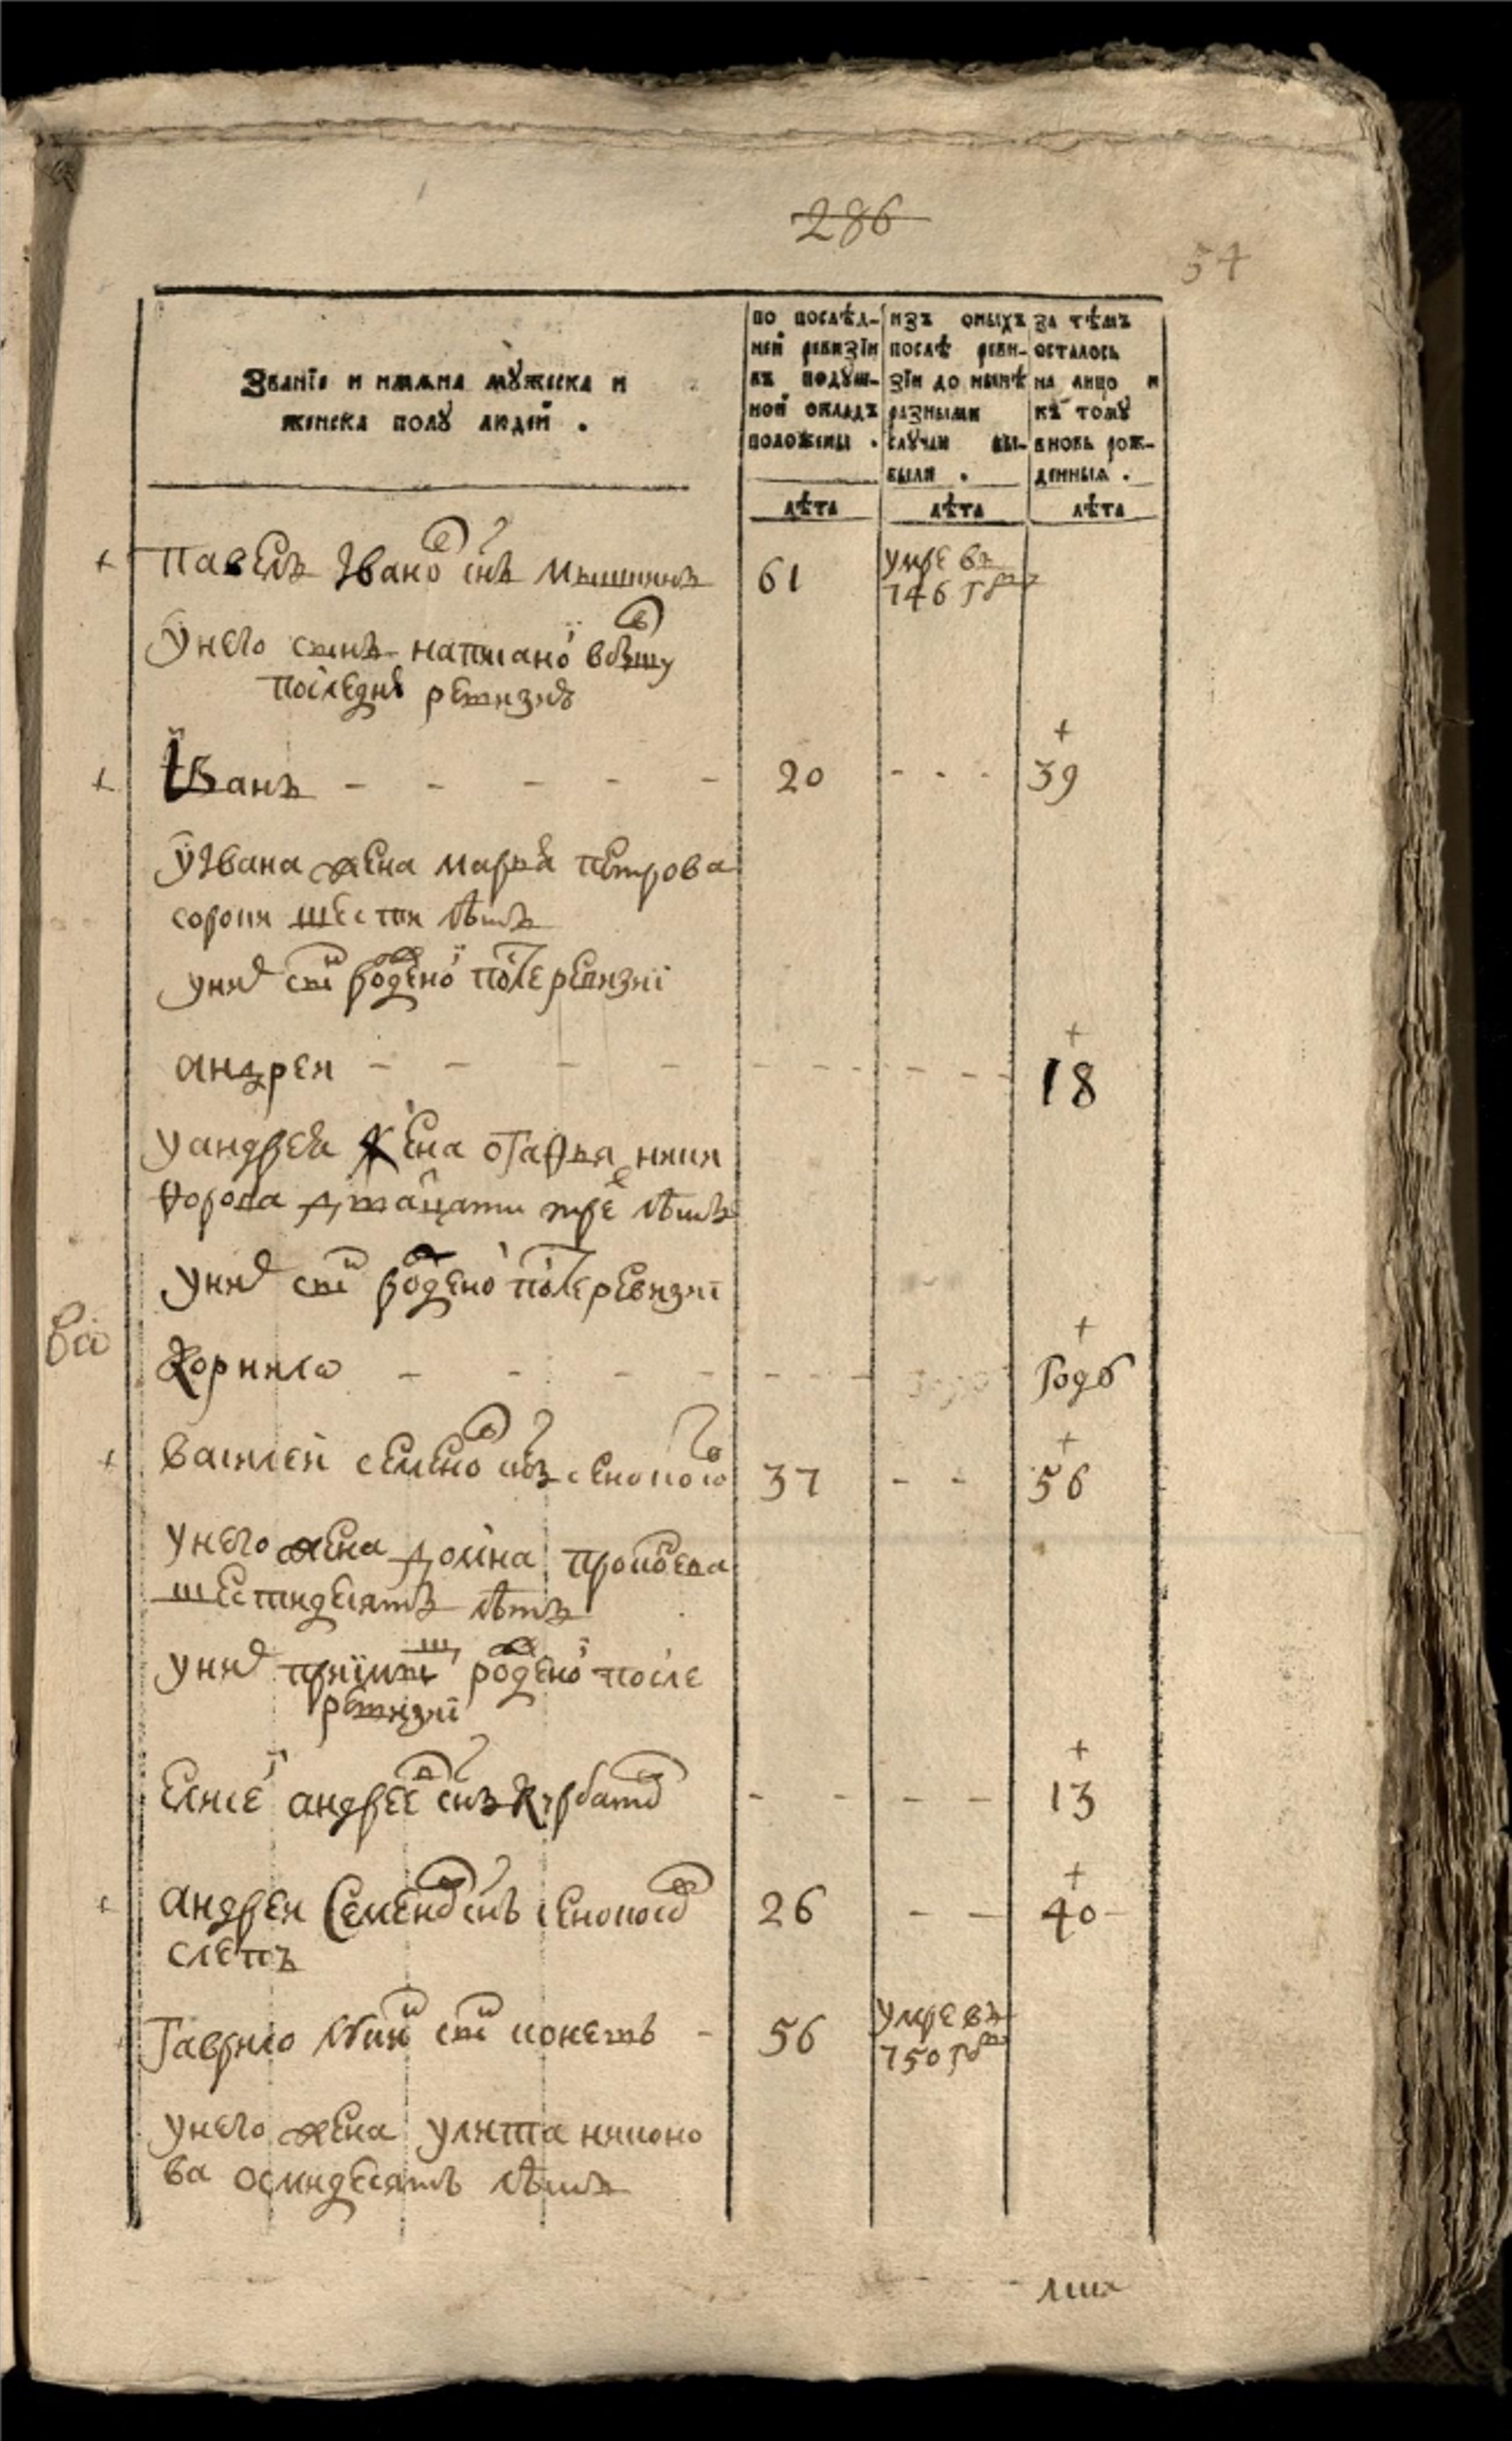 286
54
Званїе и имѧна мꙋжеска и
женска полꙋ людей .
по послѣд-
ней ревизїи
въ подꙋш-
ной окладъ
положены .
изъ оныхъ
послѣ реви-
зїи до нынѣ
разными
слꙋчаи вы-
были .
за тѣмъ
осталось
на лицо и
къ томꙋ
вновь рож-
денныѧ .
лѣта лѣта лѣта
+ Павелъ Іванов снъ Мышкинъ 61 умре въ
746 году
У него сынъ написаной в бывшу
последнѣ ревизию
+
+ Иванъ - - - - - 20 - - - 39
У Ивана жена Марья Петрова
сороки шести лѣтъ
у них сын рожденой после ревизиї
+
Андреи - - - - - - - - - 18
У Андрея жена Огафья Ники
форова дватцати трех лѣтъ
у них сын рожденой после ревизиї
+
Корнило - - - - - - - годъ
+
+ Василей Семенов снъ 37 - - 56
У него жена Домна
шестидесятъ лѣтъ
у них приимыш рожденой после
ревизиї
+
Елисей Андреев снъ Курбатов - - - - 13
+
+ Андреи Семенов снъ 26 - - 40
слепъ
Гаврило сын - 56 умре въ
750 году
У него жена Улита Никоно
ва осмидесятъ лѣтъ